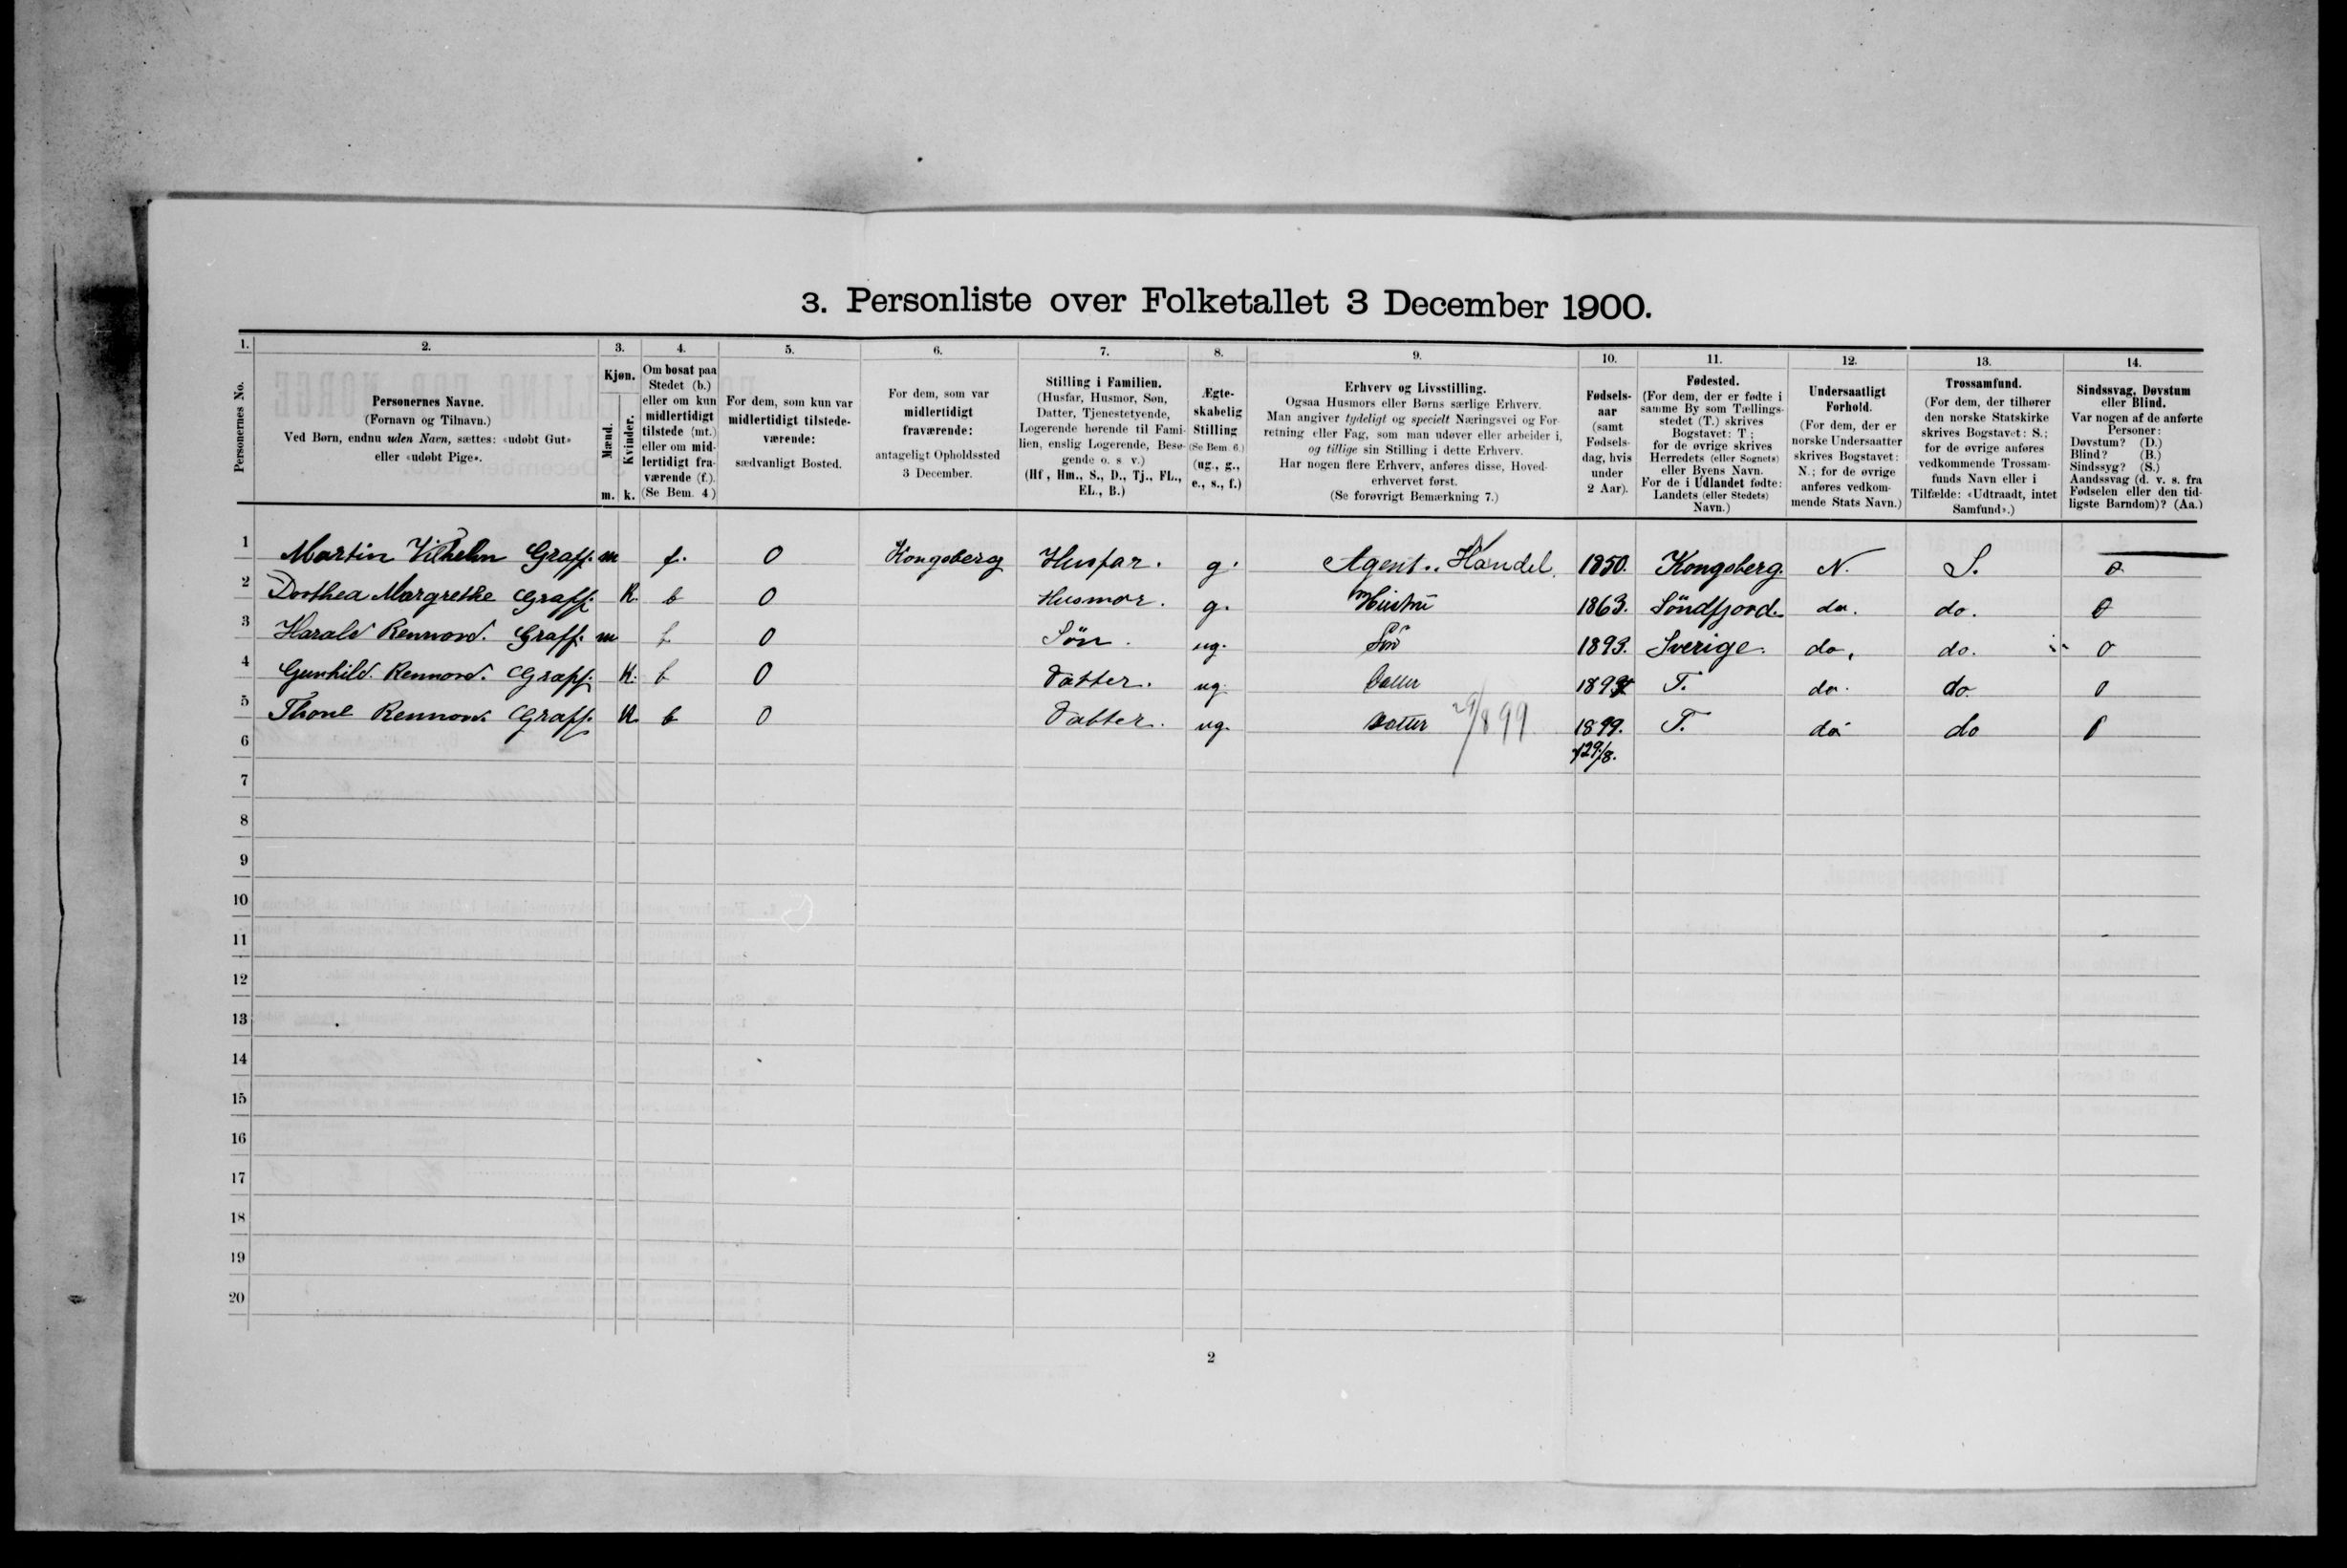 3. Personliste over Folketallet 3 December 1900.
1. 2. 3. 4. 5. 6. 7. 8. 9. 10. 11. 12. 13. 14.
Personernes No.
Personernes Navne.
(Fornavn og Tilnavn.)
Ved Børn, endnu uden Navn, sættes: «udøbt Gut»
eller «udøbt Pige».
Kjøn.
Mænd.
Kvinder.
m. k.
Om bosat paa
Stedet (b.)
eller om kun
midlertidigt
tilstede (mt.)
eller om mid-
lertidigt fra-
værende (f.).
(Se Bem. 4.)
For dem, som kun var
midlertidigt tilstede-
værende:
sædvanligt Bosted.
For dem, som var
midlertidigt
fraværende:
antageligt Opholdssted
3 December.
Stilling i Familien.
(Husfar, Husmor, Søn,
Datter, Tjenestetyende,
Logerende hørende til Fami-
lien, enslig Logerende, Besø-
gende o. s. v.)
(Hf., Hm., S., D., Tj., FL.,
EL., B.)
Ægte-
skabelig
Stilling
(Se Bem. 6.)
(ug., g.,
e., s., f.)
Erhverv og Livsstilling.
Ogsaa Husmors eller Børns særlige Erhverv.
Man angiver tydeligt og specielt Næringsvei og For-
retning eller Fag, som man udøver eller arbeider i,
og tillige sin Stilling i dette Erhverv.
Har nogen flere Erhverv, anføres disse, Hoved-
erhvervet først.
(Se forøvrigt Bemærkning 7.)
Fødsels-
aar
(samt
Fødsels-
dag, hvis
under
2 Aar).
Fødested.
(For dem, der er fødte i
samme By som Tællings-
stedet (T.) skrives
Bogstavet: T;
for de øvrige skrives
Herredets (eller Sognets)
eller Byens Navn.
For de i Udlandet fødte:
Landets (eller Stedets)
Navn.)
Undersaatligt
Forhold.
(For dem, der er
norske Undersaatter
skrives Bogstavet:
N.; for de øvrige
anføres vedkom-
mende Stats Navn.)
Trossamfund.
(For dem, der tilhører
den norske Statskirke
skrives Bogstavet: S.;
for de øvrige anføres
vedkommende Trossam-
funds Navn eller i
Tilfælde: «Udtraadt, intet
Samfund».)
Sindssvag, Døvstum
eller Blind.
Var nogen af de anførte
Personer:
Døvstum? (D.)
Blind? (B.)
Sindssyg? (S.)
Aandssvag (d. v. s. fra
Fødselen eller den tid-
ligste Barndom)? (Aa.)
1 Martin Vilhelm Graff. m f. 0 Kongsberg Husfar. g. Agent.. Handel. 1850. Kongsberg. N. S. 0
2 Dorthea Margrethe Graff. K. b 0 Husmor. g. Hustru 1863. Söndfjord. do. do. 0
3 Harald Rennord. Graff. m b 0 Sön. ug. Sön 1893. Sverige. do. do. 0
4 Gunhild. Rennord. Graff. K. b 0 Datter. ug. Datter T. do. do. 0
5 Rennord. Graff. K. b 0 Datter. ug. Datter 29/8 99 1899. T. do do 0
6 29/8.
7
8
9
10
11
12
13
14
15
16
17
18
19
20
2